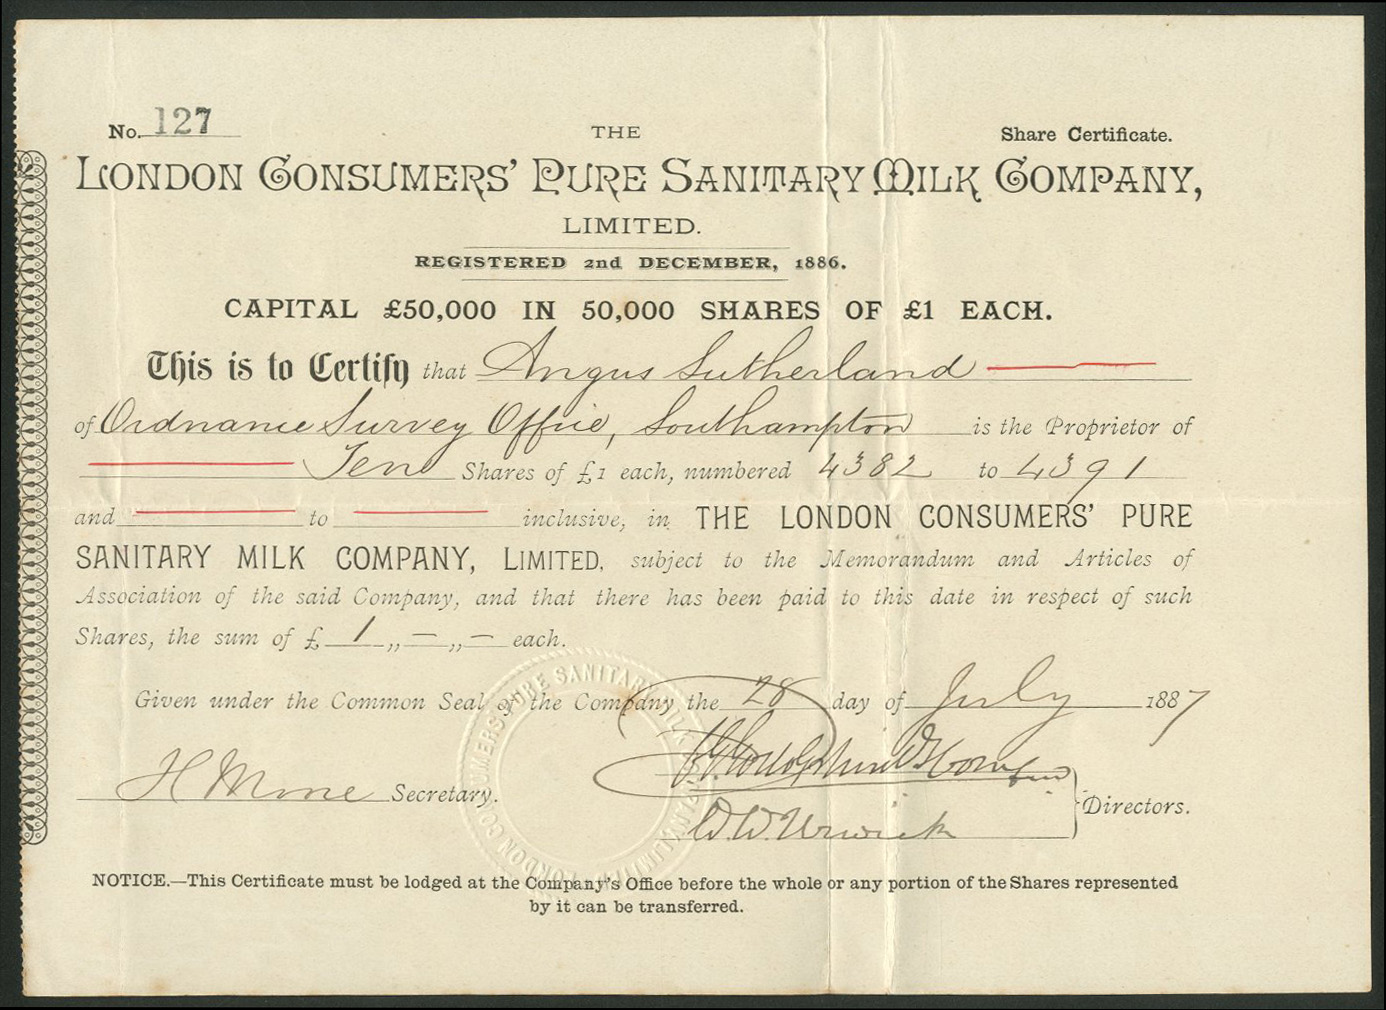 No. 127
THE
Share Certificate.
LONDON CONSUMERS' PURE SANITARY MILK COMPANY,
LIMITED.
REGISTERED 2nd DECEMBER, 1886.
CAPITAL £50,000 IN 50,000 SHARES OF £1 EACH.
This is to Certify that Angus Sutherland
of Ordnance Survey Office, Southampton is the Proprietor of
Ten Shares of £1 each, numbered 4382 to 4391
and to inclusive, in THE LONDON CONSUMERS' PURE
SANITARY MILK COMPANY, LIMITED, subject to the Memorandum and Articles of
Association of the said Company, and that there has been paid to this date in respect of such
Shares, the sum of £ 1 ,, — ,, — each.
Given under the Common Seal of the Company the 28 day of July 1887
H Secretary.
W. W. Urwick Directors.
LONDON CONSUMERS PURE SANITARY MILK COMPANY LIMITED
NOTICE.—This Certificate must be lodged at the Company's Office before the whole or any portion of the Shares represented
by it can be transferred.